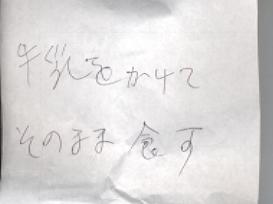 牛乳をかけて
そのまま食す